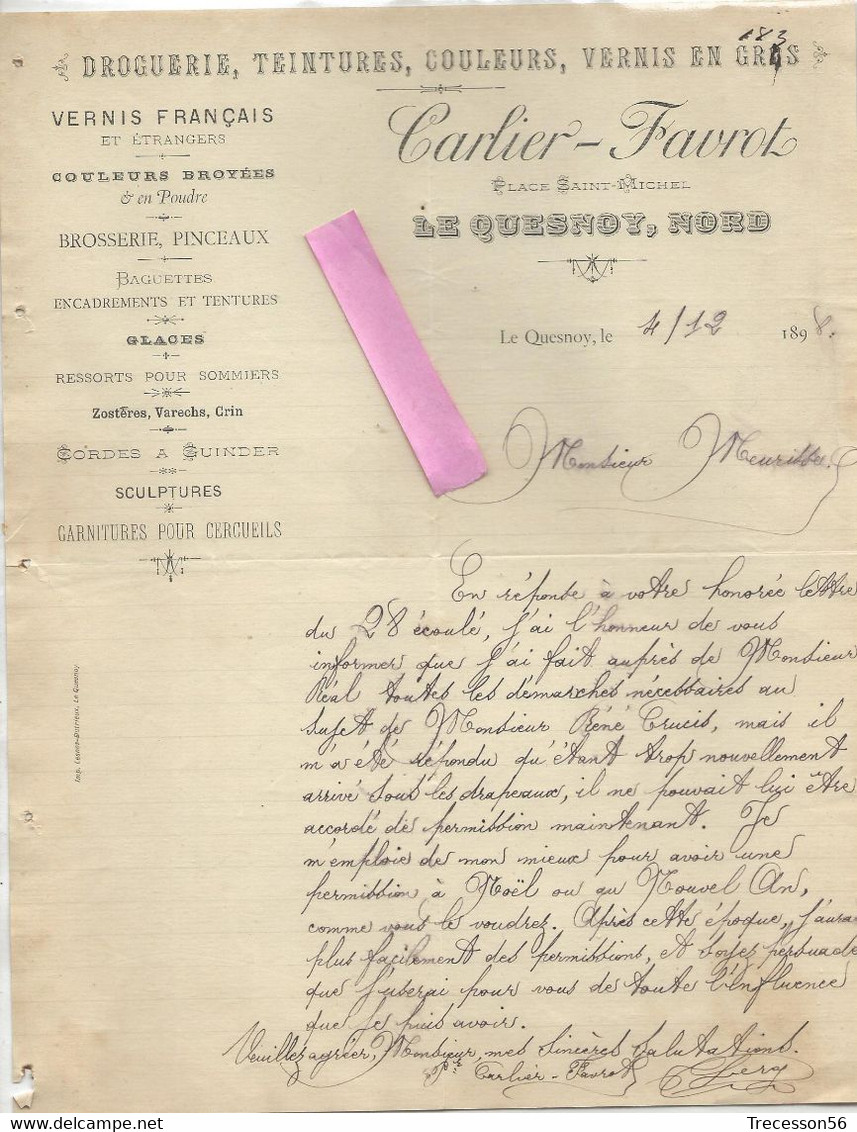 183
DROGUERIE, TEINTURES, COULEURS, VERNIS EN GROS
VERNIS FRANÇAIS
ET ÉTRANGERS
COULEURS BROYÉES
& en Poudre
BROSSERIE, PINCEAUX
BAGUETTES
ENCADREMENTS ET TENTURES
GLACES
RESSORTS POUR SOMMIERS
Zostères, Varechs, Crin
CORDES A GUINDER
SCULPTURES
GARNITURES POUR CERCUEILS
Carlier-Favrot
PLACE SAINT-MICHEL
LE QUESNOY, NORD
Le Quesnoy, le 4/12 1898.
Monsieur Meurisse.
En réponse à votre honorée lettre
du 28 écoulé, j'ai l'honneur de vous
informer que j'ai fait auprès de Monsieur
Réal toutes les démarches nécessaires au
sujet de Monsieur Réné Crucis, mais il
m'a été répondu qu'étant trop nouvellement
arrivé sous les drapeaux, il ne pouvait lui être
accordé de permission maintenant. Je
m'emploie de mon mieux pour avoir une
permission à Noël ou au Nouvel An,
comme vous le voudrez. Après cette époque, j'aurai
plus facilement des permissions, et soyez persuadé
que j'userai pour vous de toute l'influence
que je puis avoir.
Veuillez agréer, Monsieur, mes sincères salutations.
Pr Carlier-Favrot
Imp. Lesnne-Datrieux, Le Quesnoy
Trecesson56